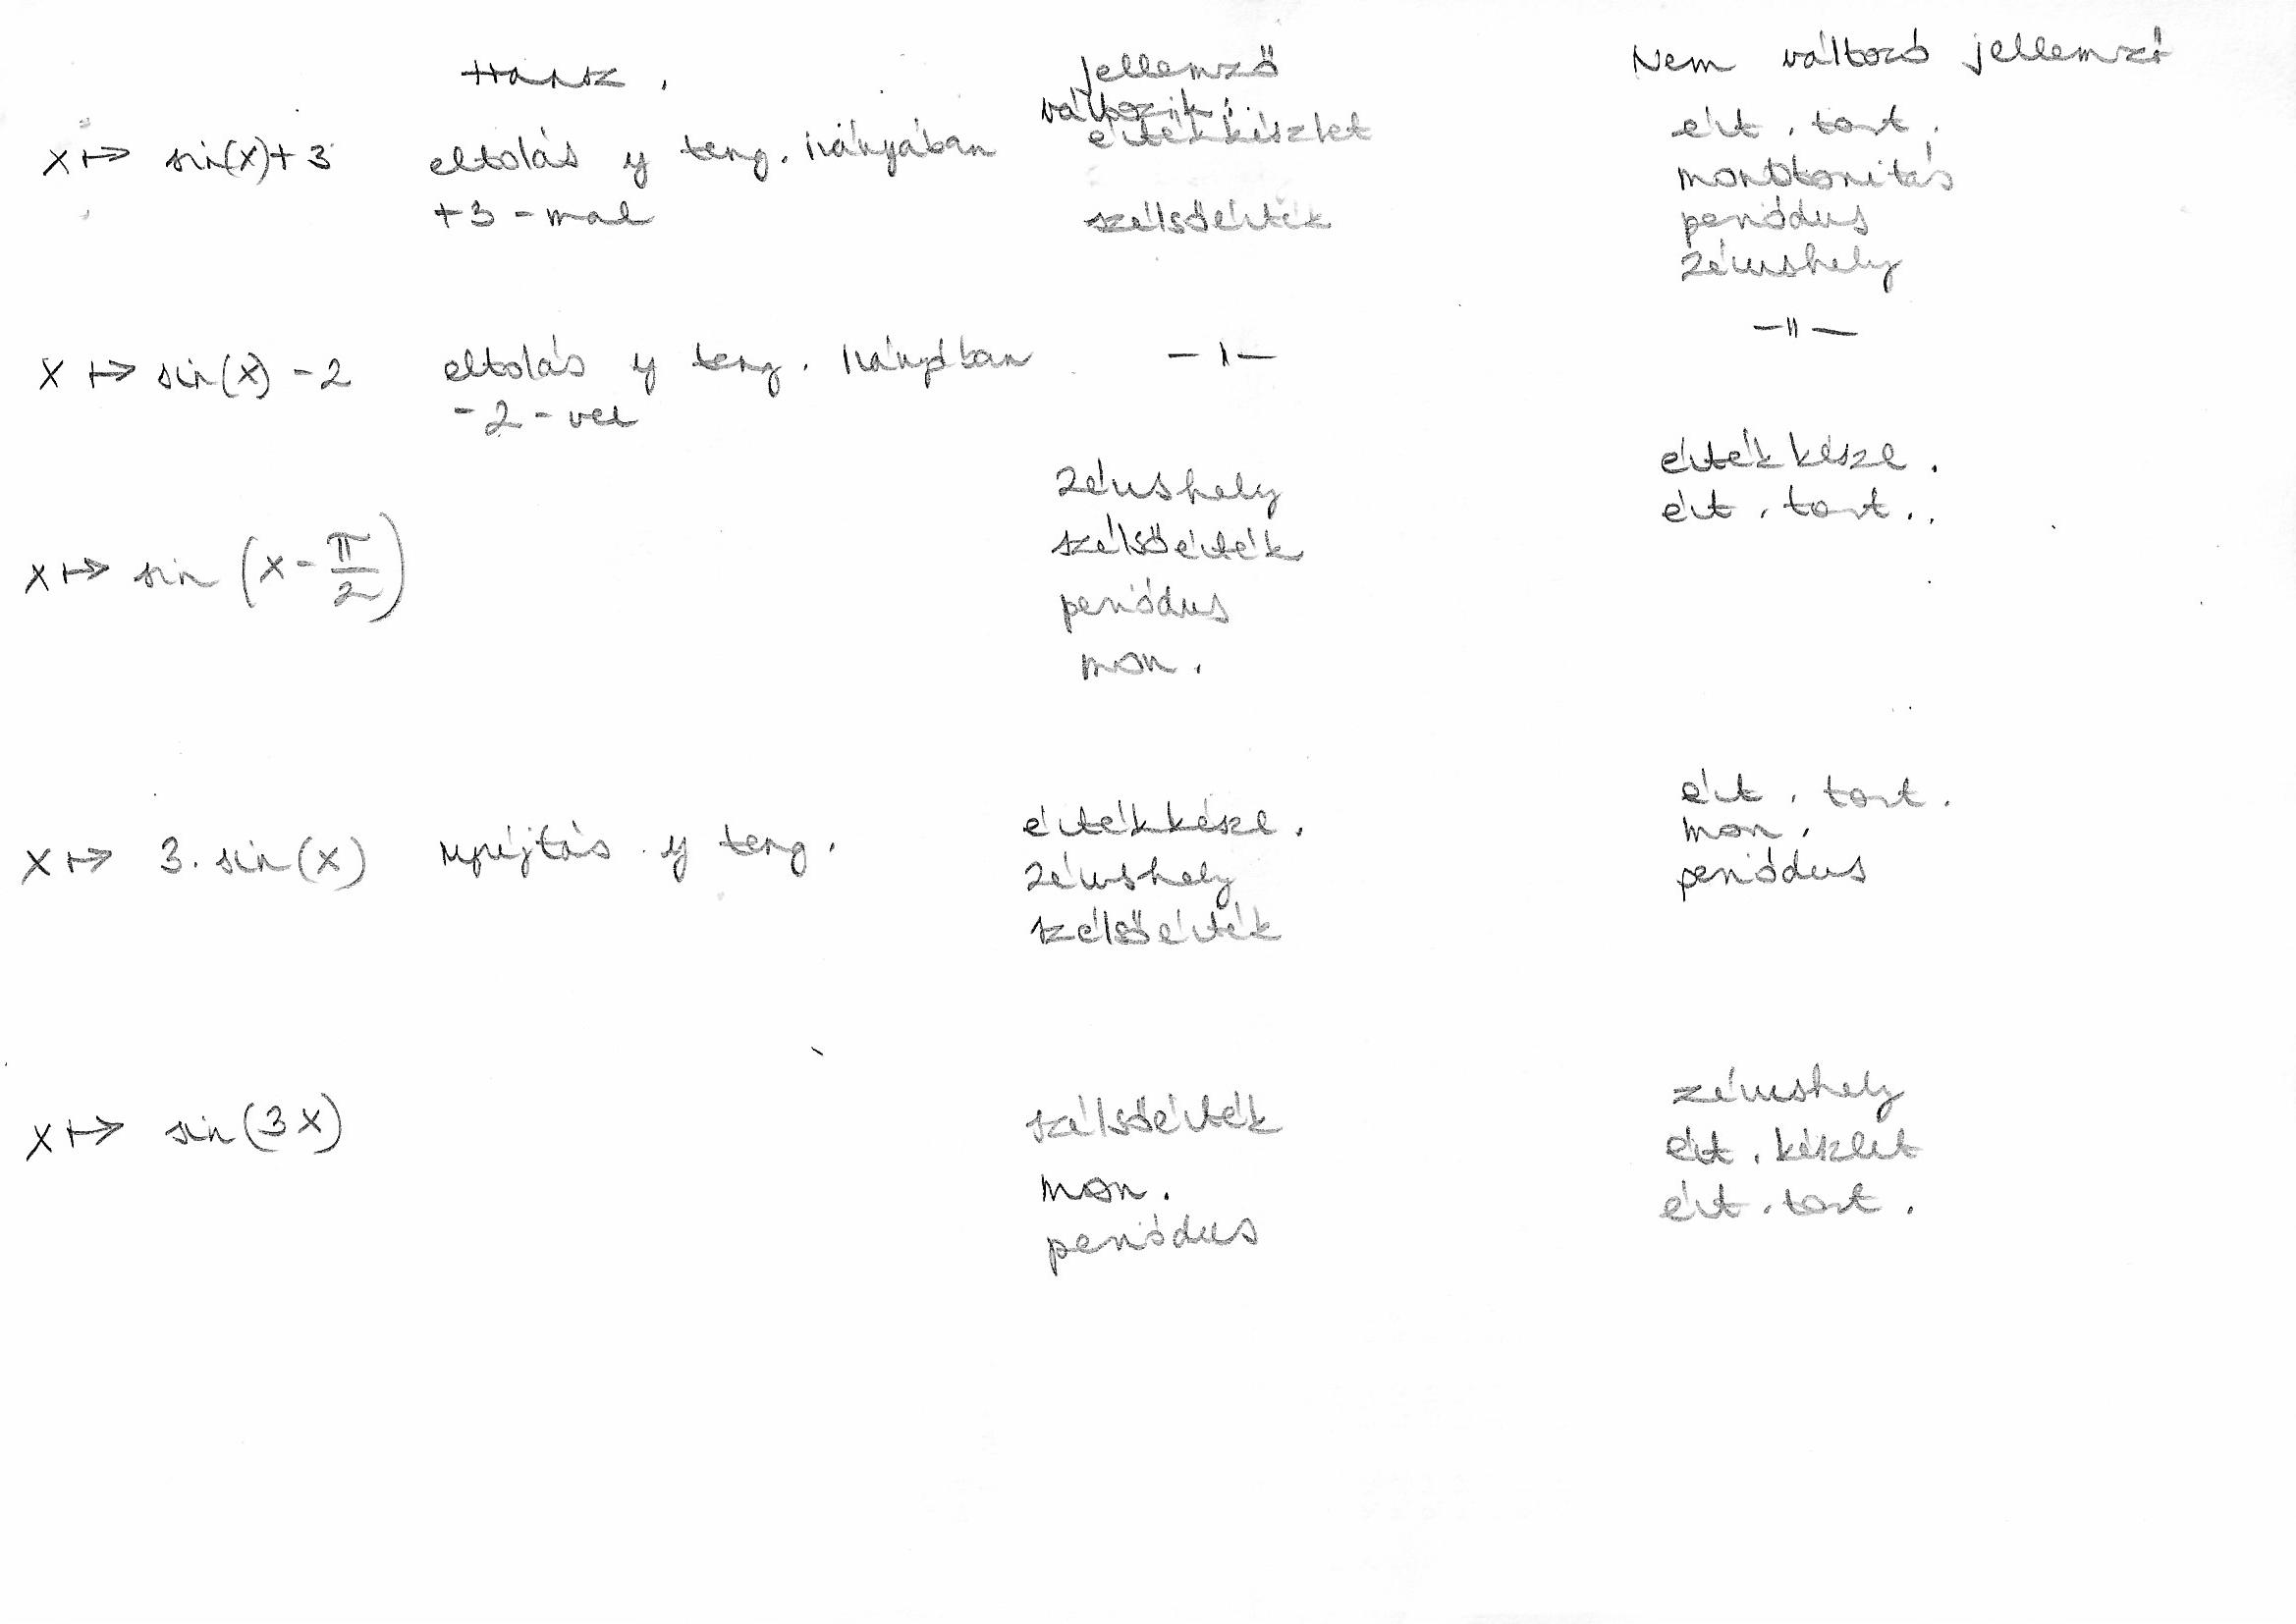 transz. jellemző változik: Nem változó jellemző
x ↦ sin(x)+3 eltolás y teng. irányában értékkészlet ért. tart.
+3-mal szélsőérték monotonitás
periódus
zérushely
x ↦ sin(x) -2 eltolás y teng. irányában -ı- -॥-
-2-vel
zérushely értékkészl.
szélsőérték ért. tart..
x ↦ sin (x - π/2)
periódus
mon.
x ↦ 3. sin(x) nyújtás y teng. értékkészl. ért. tart.
zérushely mon.
szélsőérték periódus
x ↦ sin(3x) szélsőérték zérushely
mon. ért. készlet
periódus ért. tart.